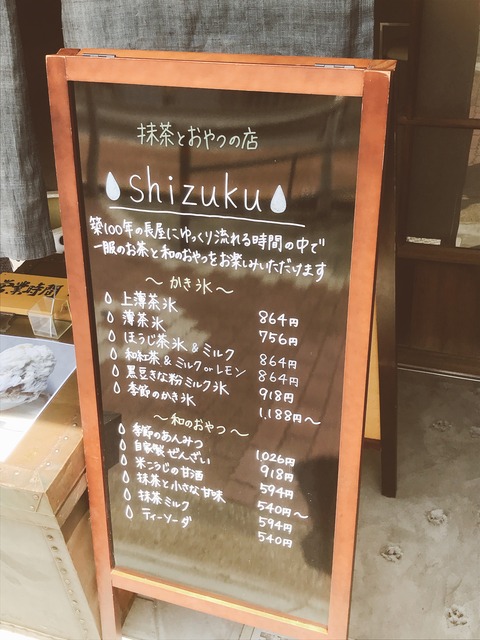 抹茶とおやつの店
shizuku
築100年の長屋にゆっくり流れる時間の中で
一服のお茶と和のおやつをお楽しみいただけます
〜かき氷〜
上薄茶氷 864円
薄茶氷 756円
ほうじ茶氷&ミルク 864円
和紅茶&ミルクorレモン 864円
黒豆きな粉ミルク氷 918円
季節のかき氷 1,188円〜
〜和のおやつ〜
季節のあんみつ 1026円
自家製ぜんざい 918円
米こうじの甘酒 594円
抹茶と小さな甘味 540円〜
抹茶ミルク 594円
ティーソーダ 540円
営業時間